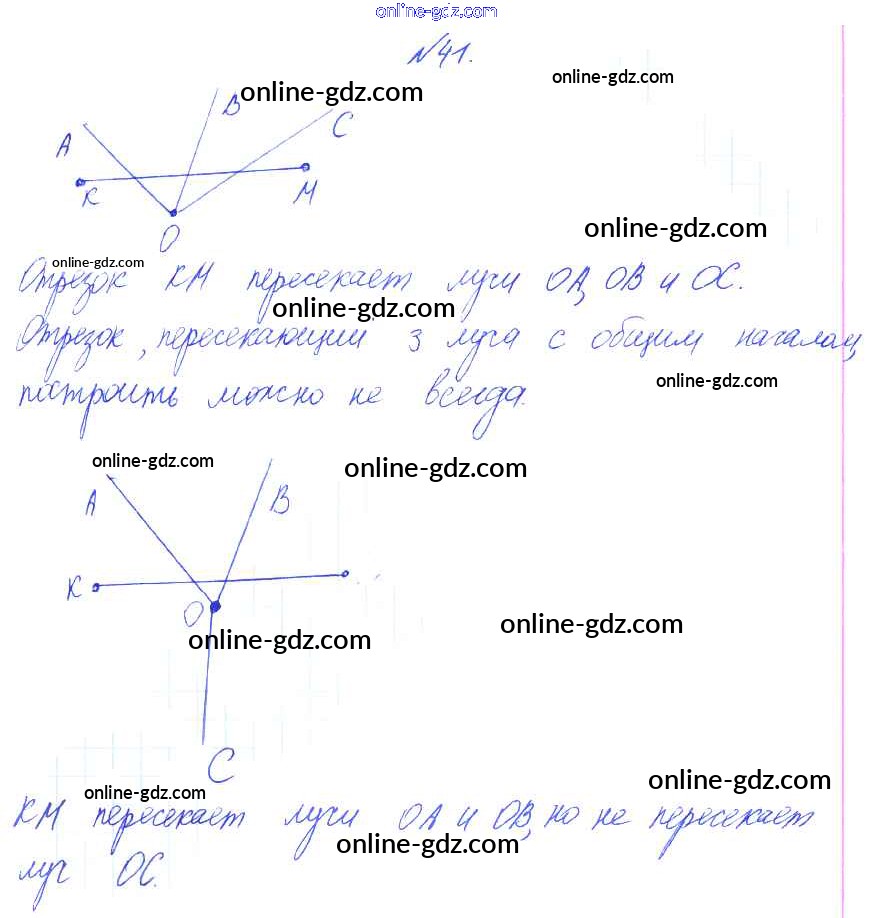 online-gdz.com
№41.
online-gdz.com
online-gdz.com
B
C
A
K
M
O
online-gdz.com
online-gdz.com
Отрезок КМ пересекает лучи ОА, ОВ и ОС.
online-gdz.com
Отрезок, пересекающий 3 луча с общим началом,
online-gdz.com
построить можно не всегда.
online-gdz.com
online-gdz.com
A
B
K
O
online-gdz.com
online-gdz.com
C
online-gdz.com
online-gdz.com
КМ пересекает лучи ОА и ОВ, но не пересекает
online-gdz.com
луч ОС.